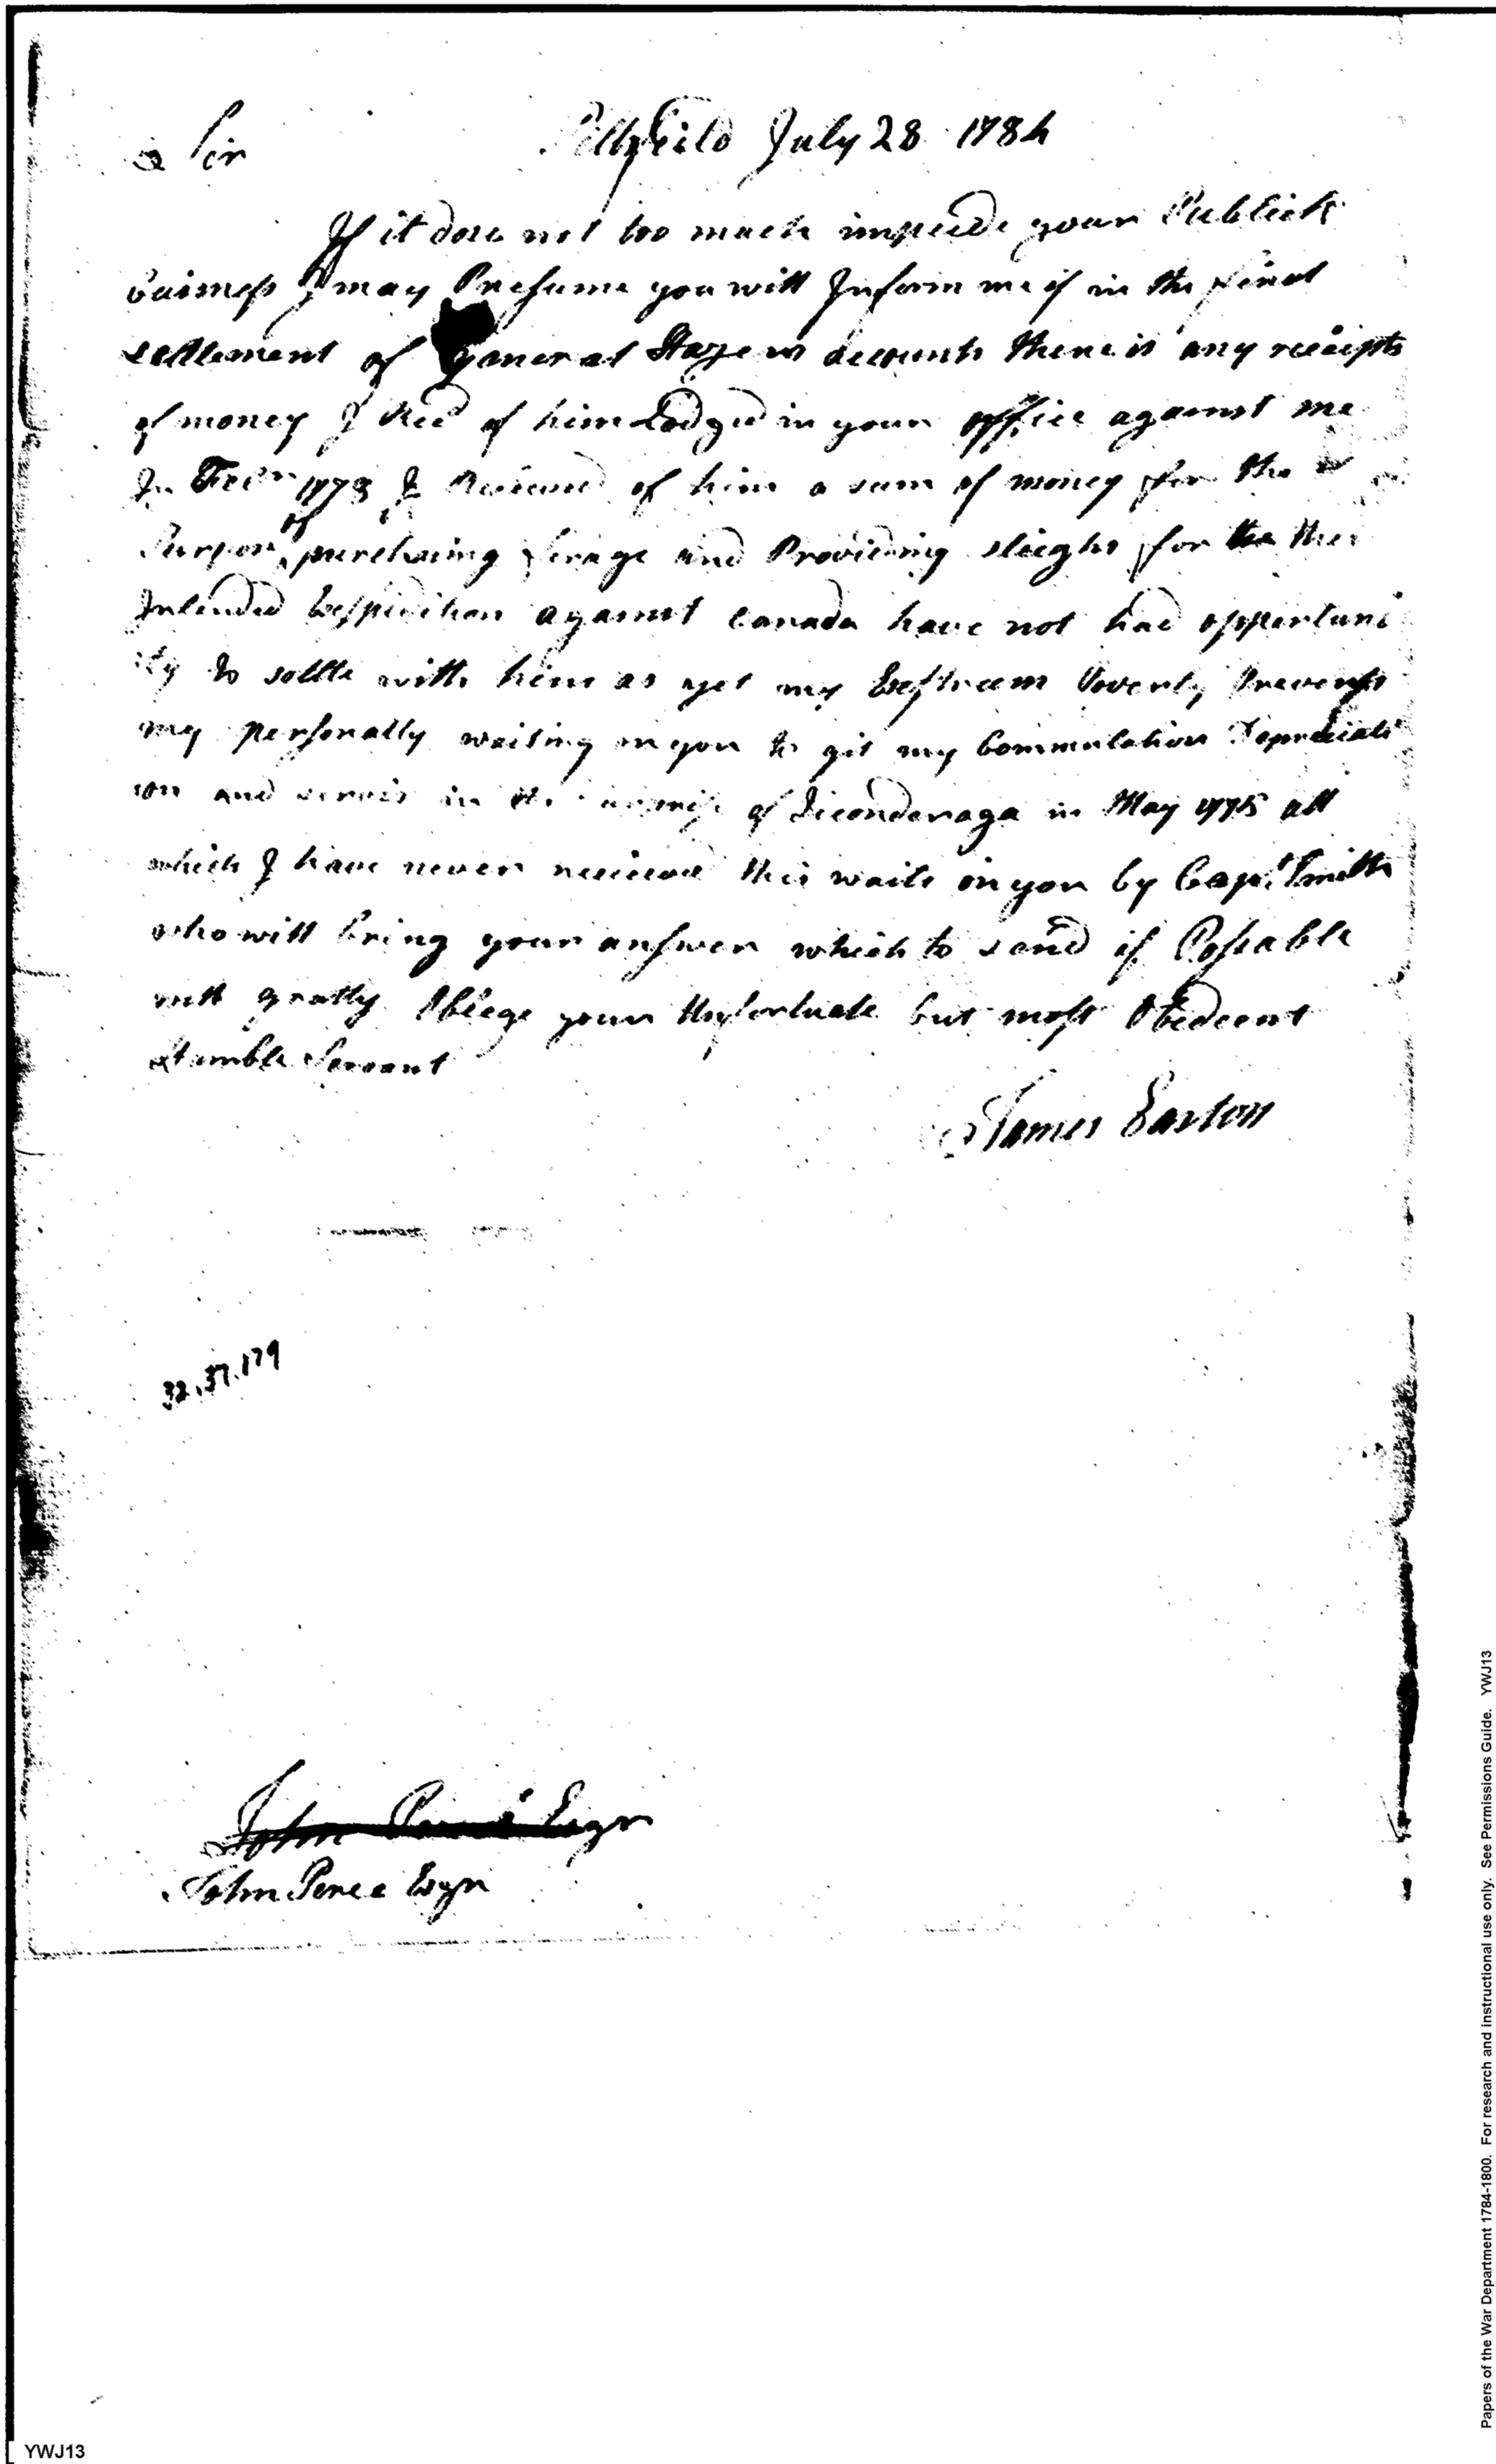 Sir Pittsfeild July 28 1784
If it does not too much impeede your Publick
buisness I may Presume you will Inform me if in the final
settlement of general Hazens accounts there is any receipts
of money I Recd of him Lodged in your office against me
In Febr 1778 I Recieved of him a sum of money for the
Purpose of purchasing forage and Provideing sleighs for the
Intended Expedition against Canada have not had opportuni
ity to settle with him as yet my Extreem Poverty Prevents
my personally waiting on you to git my Commutation Depreciati
on and servis in the of Ticonderaga in May 1775 all
which I have never recieved this waits on you by Capt Smith
who will bring your answer which to send if Possable
will gratly Oblege your Unfortuate but most Obedeent
Humble Servant
James Easton
32.37.179
John Esqr
John Perce Esqr
Papers of the War Department 1784-1800. For research and instructional use only. See Permissions Guide. YWJ13
YWJ13